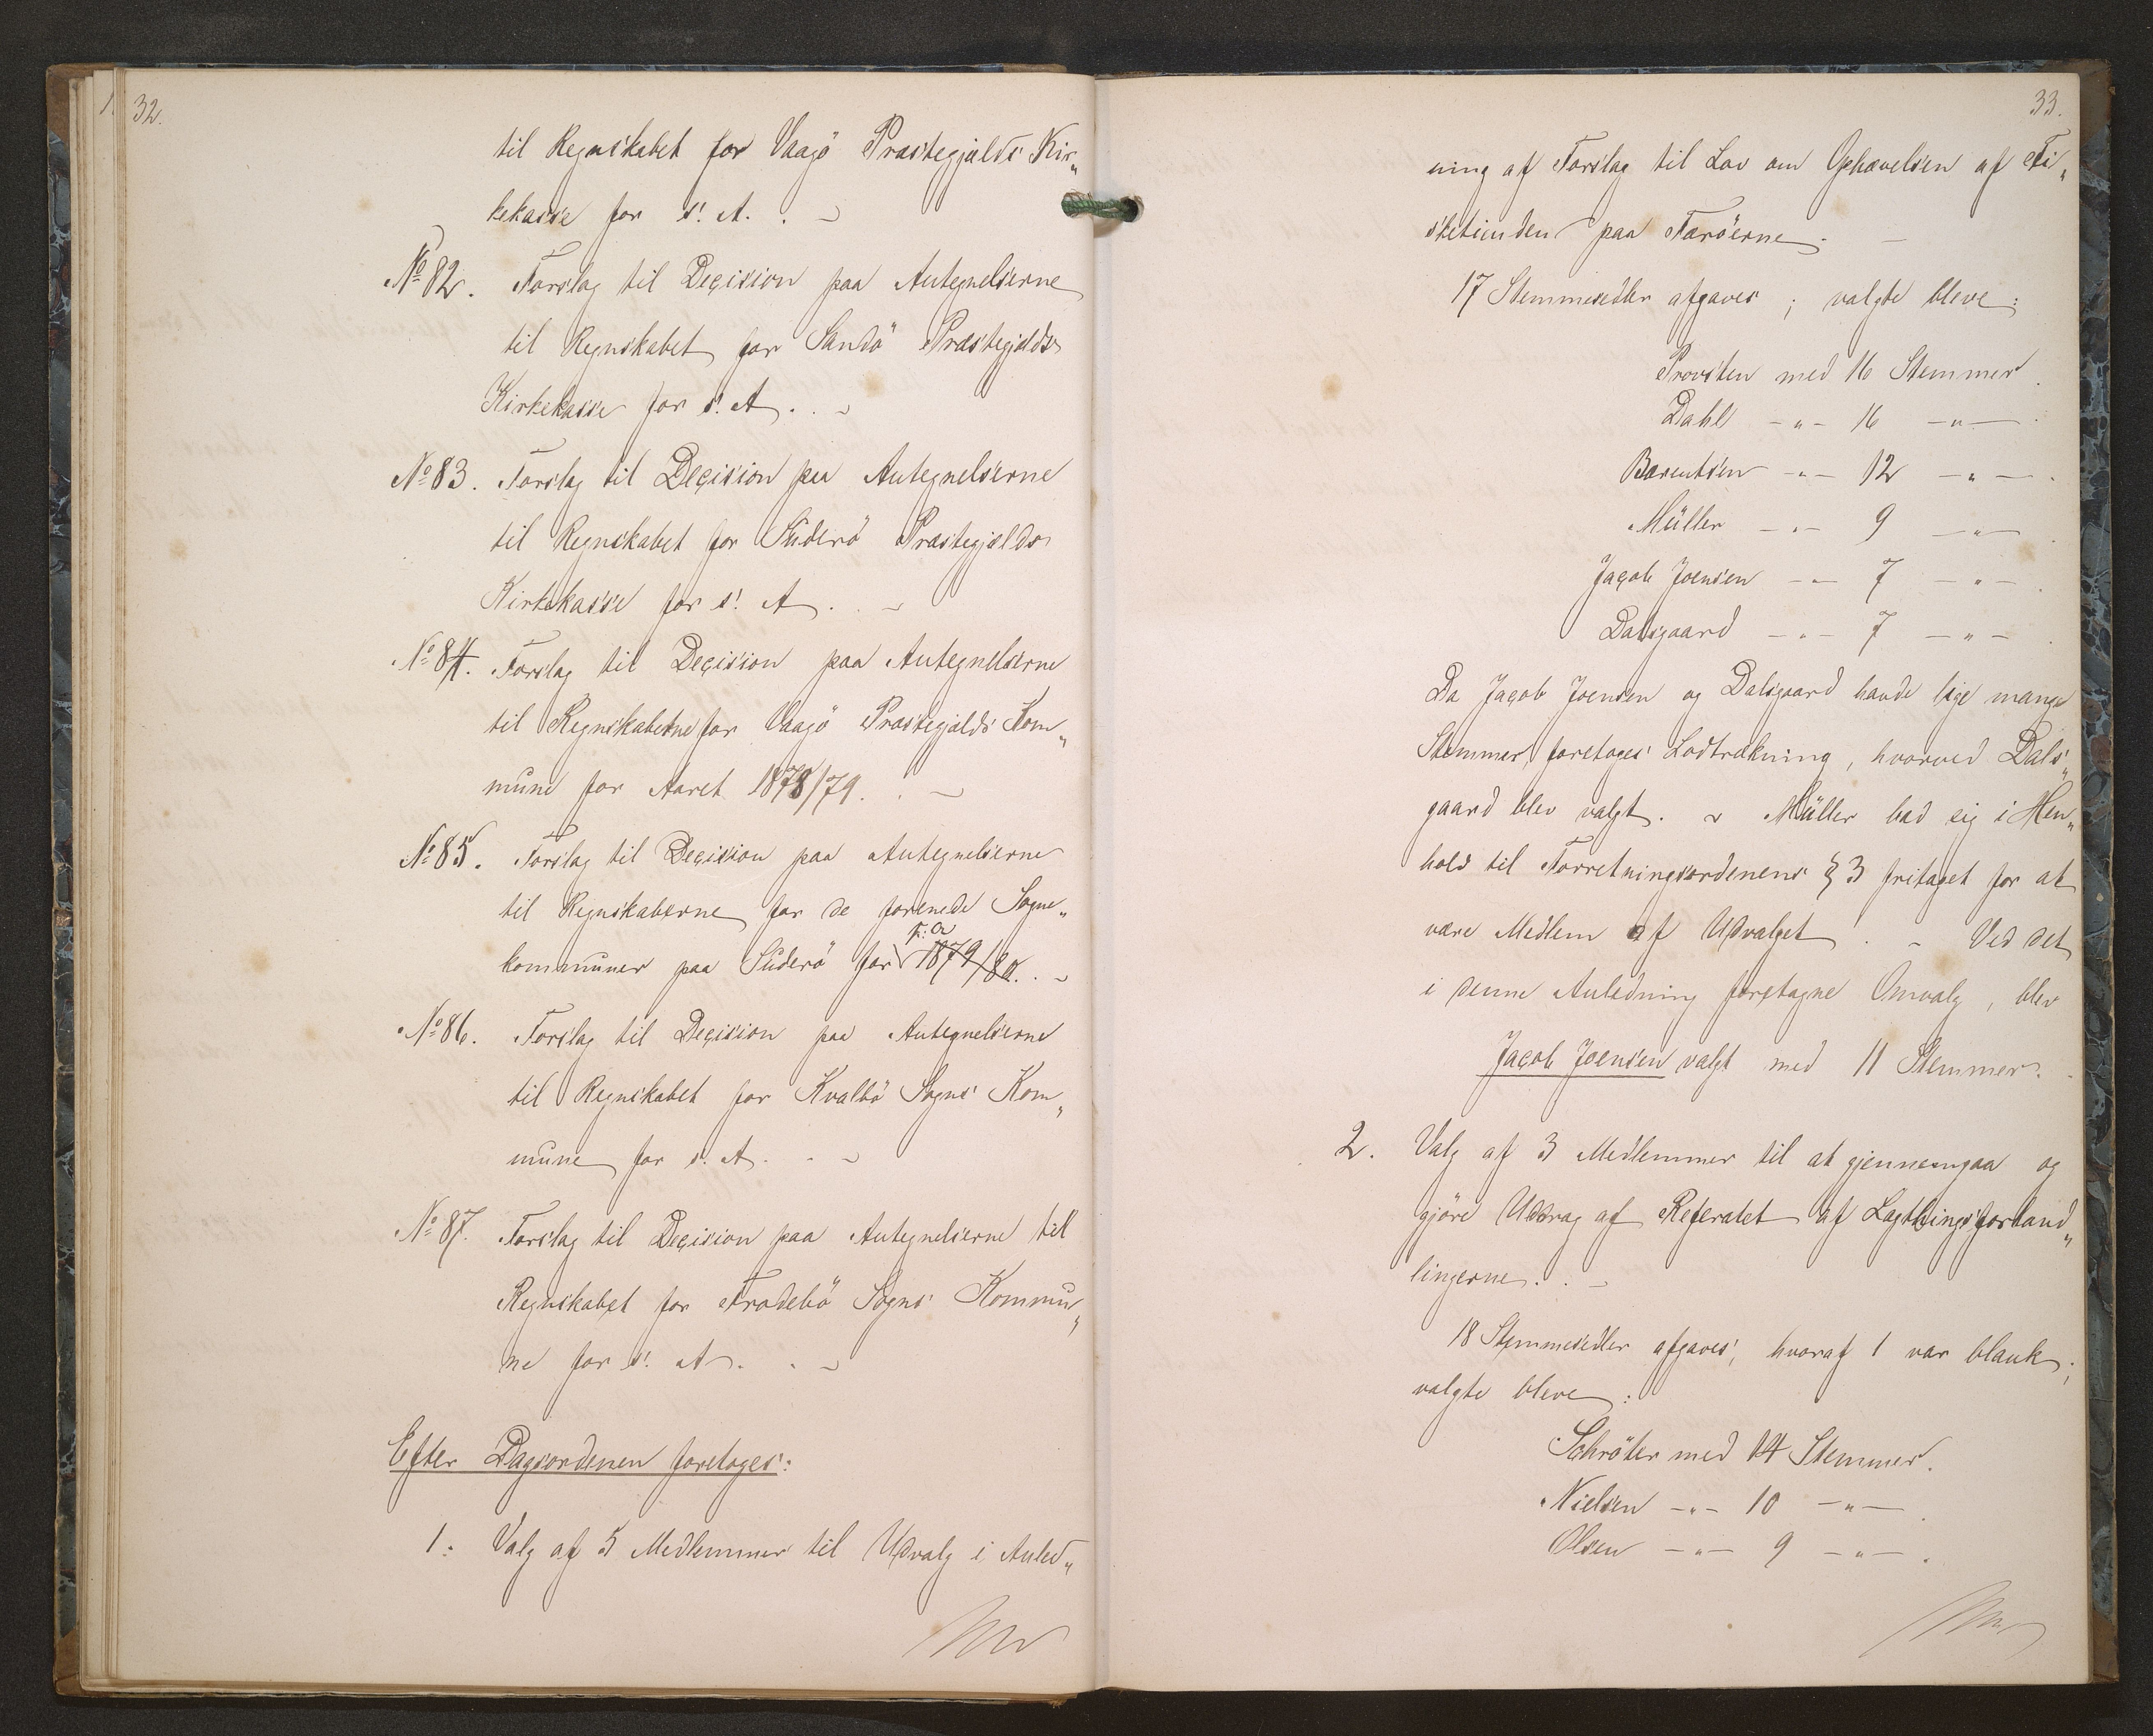 32.
til Regnskabet for Vaagö Præstegjælds Kir„
kekasse for s. A. . –
№ 82. Forslag til Decision paa Antegnelserne
til Regnskabet for Sandö Præstegjælds
Kirkekasse for s. A. . –
№ 83. Forslag til Decision paa Antegnelserne
til Regnskabet for Süderö Præstegjælds
Kirkekasse for s. A. . –
№ 84. Forslag til Decision paa Antegnelserne
til Regnskaberne for Vaagö Præstegjælds Kom„
mune for Aaret 1878/79. . –
№ 85. Forslag til Decision paa Antegnelserne
til Regnskaberne for de forenede Sogne„
kommuner paa Süderö for 1879/80. . –
№ 86. Forslag til Decision paa Antegnelserne
til Regnskabet for Kvalbö Sogns Kom„
mune for s. A. . –
№ 87. Forslag til Decision paa Antegnelserne till
Regnskabet for Frodebö Sogns Kommu„
ne for s. A. . –
Efter Dagsordenen foretoges:
1. Valg af 5 Medlemmer til Udvalg i Anled„
33.
ning af Forslag til Lov om Ophævelsen af Fi„
sketienden paa Færöerne. –
17 Stemmesedler afgaves; valgte bleve:
Provsten med 16 Stemmer.
Dahl –„– 16 –„– .
Barentsen –„– 12 –„– .
Müller –„– 9 –„– .
Jacob Joensen –„– 7 –„– .
Dalsgaard –„– 7 –„– .
Da Jacob Joensen og Dalsgaard havde lige mange
Stemmer, foretoges Lodtrækning, hvorved Dals„
gaard blev valgt. – Müller bad sig i Hen„
hold til Forretningsordenens § 3 fritaget for at
være Medlem af Udvalget. – Ved det
i denne Anledning foretagne Omvalg, blev
Jacob Joensen valgt med 11 Stemmer. –
2. Valg af 3 Medlemmer til at gjennemgaa og
gjöre Uddrag af Referatet af Lagthingsforhand„
lingerne. . –
18 Stemmesedler afgaves, hvoraf 1 var blank;
valgte bleve:
Schröter med 14 Stemmer.
Nielsen –„– 10 –„– .
Olsen –„– 9 –„– .